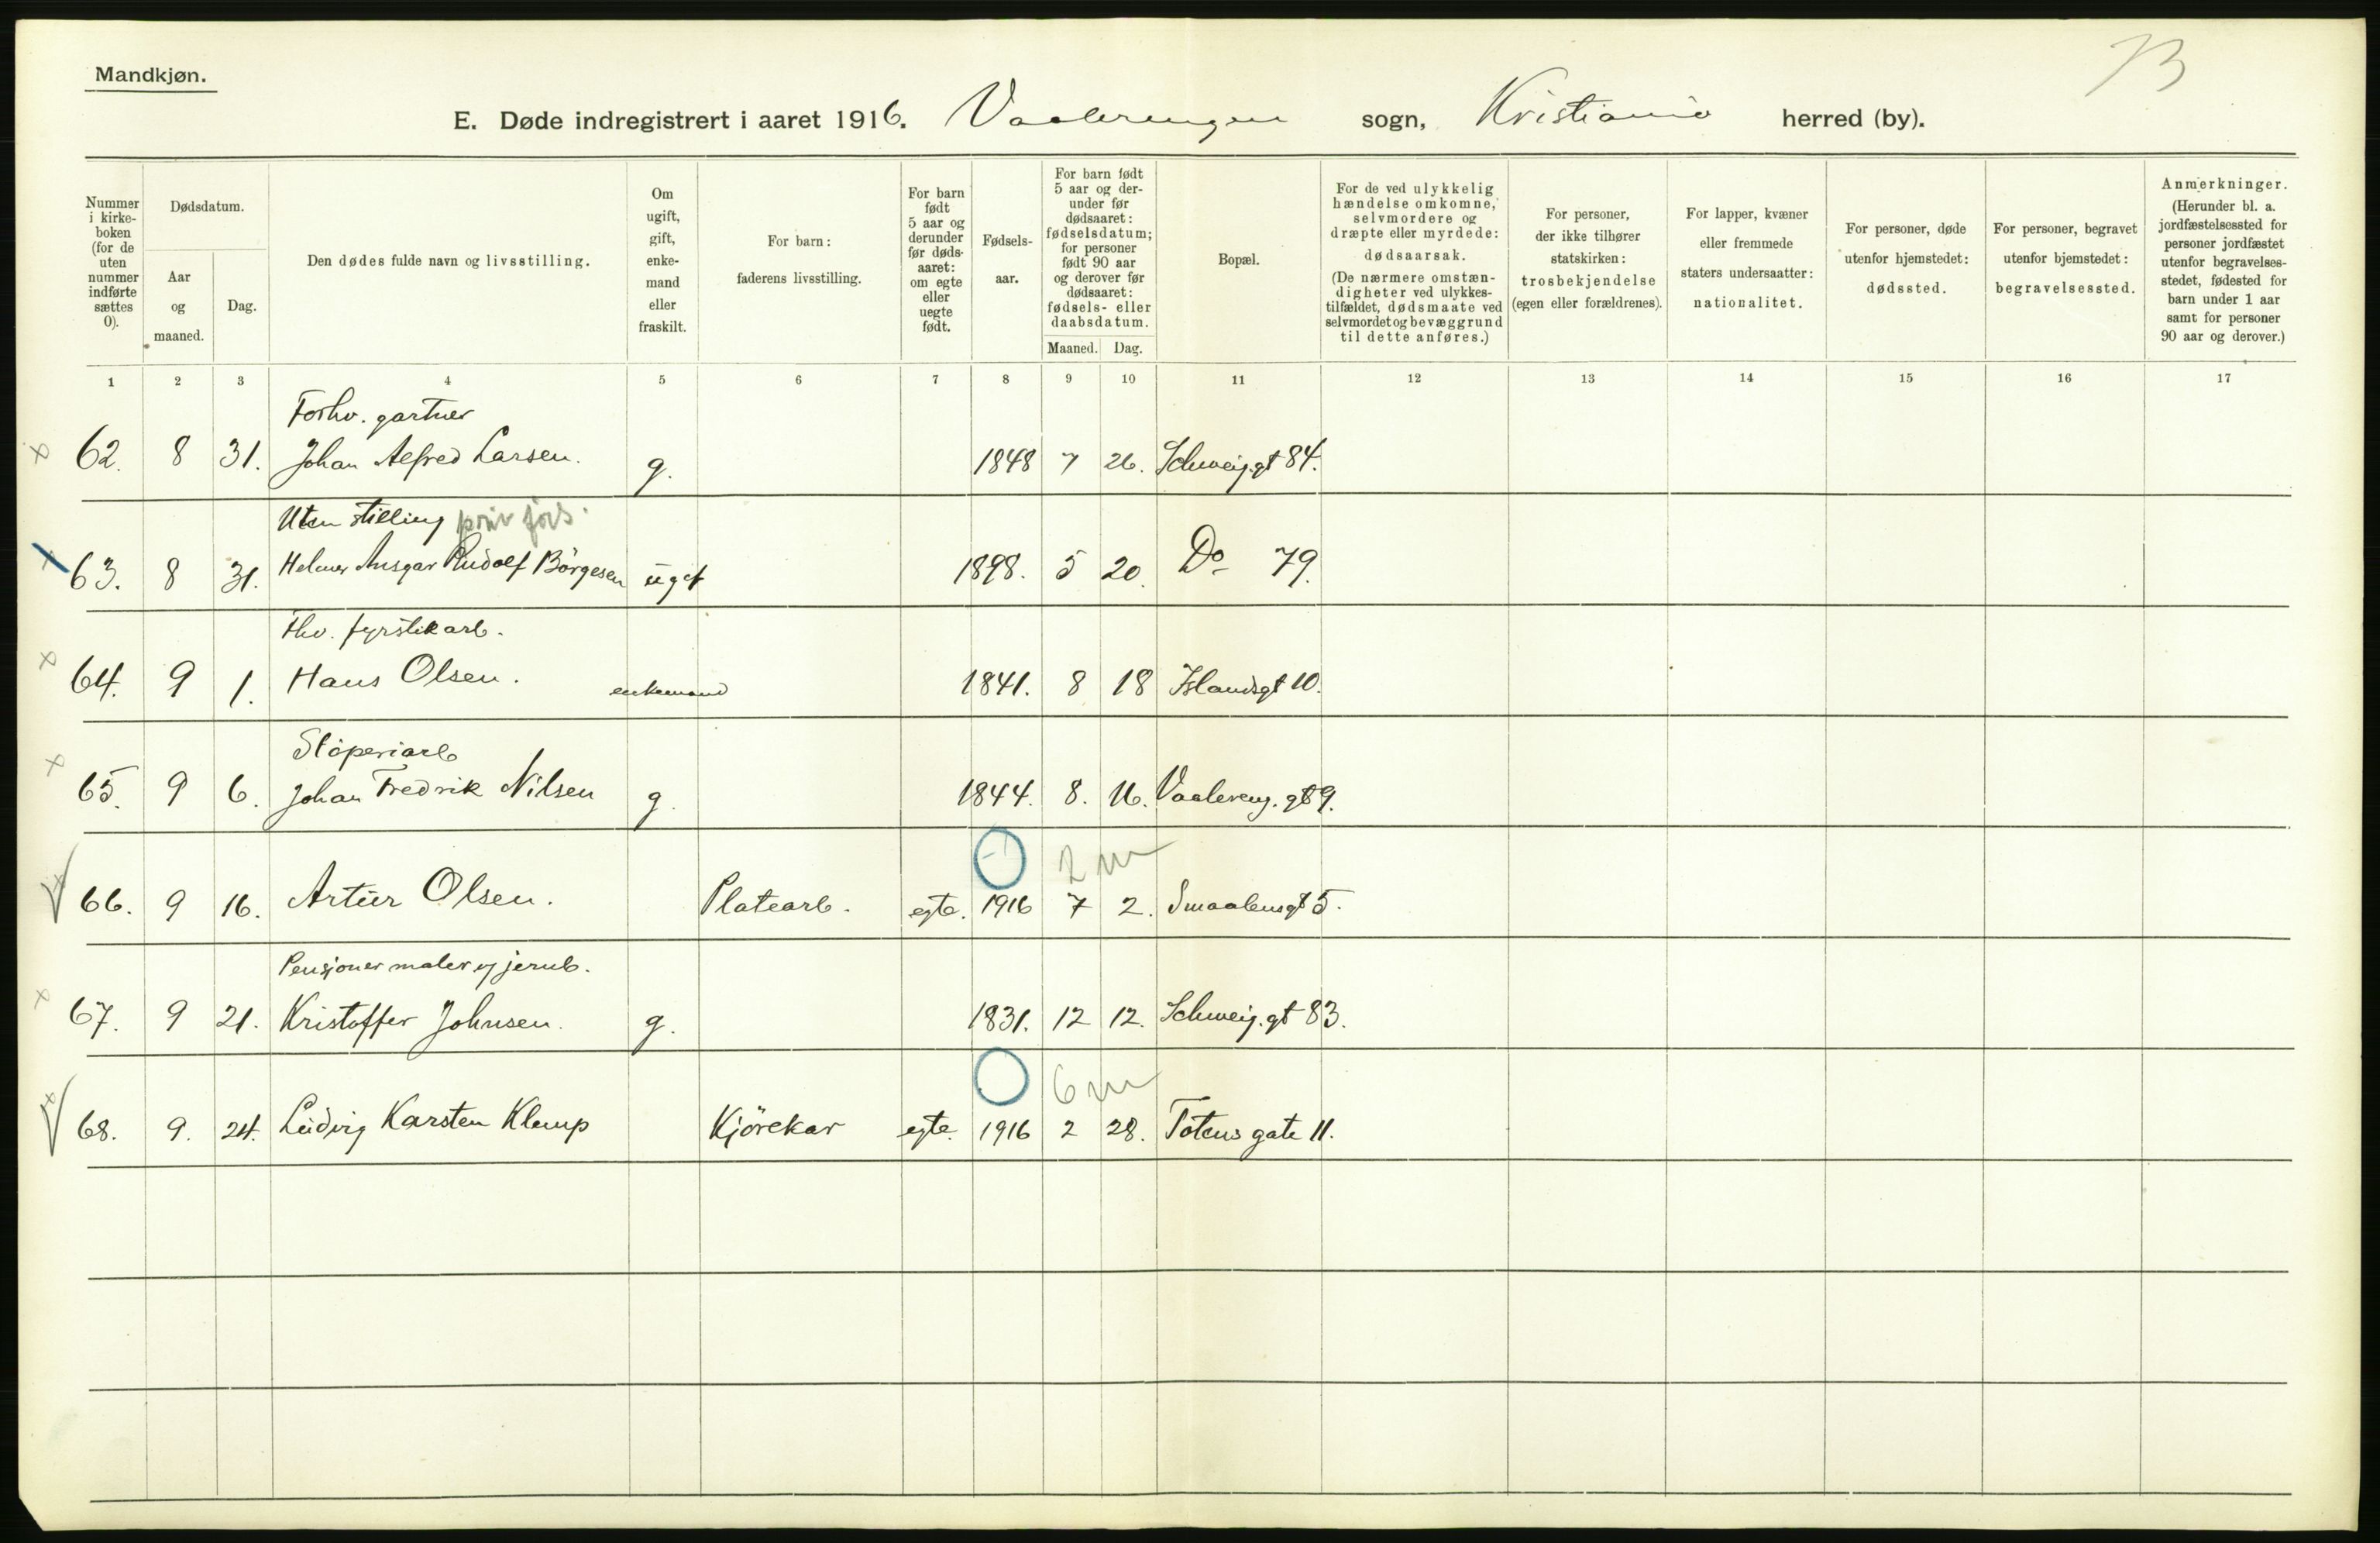 73
Mandkjøn.
E. Døde indregistrert i aaret 1916. Vaalerengen sogn, Kristiania herred (by).
Nummer
i kirke-
boken
(for de
uten
nummer
indførte
sættes
0).
Dødsdatum.
Aar
og
maaned.
Dag.
Den dødes fulde navn og livsstilling.
Om
ugift,
gift,
enke-
mand
eller
fraskilt.
For barn:
faderens livsstilling.
For barn
født
5 aar og
derunder
før døds-
aaret:
om egte
eller
uegte
født.
Fødsels-
aar.
For barn født
5 aar og der-
under før
dødsaaret:
fødselsdatum;
for personer
født 90 aar
og derover før
dødsaaret:
fødsels- eller
daabsdatum.
Maaned. Dag.
Bopæl.
For de ved ulykkelig
hændelse omkomne,
selvmordere og
dræpte eller myrdede:
dødsaarsak.
(De nærmere omstæn-
digheter ved ulykkes-
tilfældet, dødsmaate ved
selvmordet og bevæggrund
til dette anføres.)
For personer,
der ikke tilhører
statskirken:
trosbekjendelse
(egen eller forældrenes).
For lapper, kvæner
eller fremmede
staters undersaatter:
nationalitet.
For personer, døde
utenfor hjemstedet:
dødssted.
For personer, begravet
utenfor hjemstedet:
begravelsessted.
Anmerkninger.
(Herunder bl. a.
jordfæstelsessted for
personer jordfæstet
utenfor begravelses-
stedet, fødested for
barn under 1 aar
samt for personer
90 aar og derover.)
1 2 3 4 5 6 7 8 9 10 11 12 13 14 15 16 17
Forhv. gartner
62. 8 31. Johan Alfred Larsen. g. 1848 7 26. Schweig.gt 84.
Uten stilling priv fors.
63. 8 31. Helmer Ansgar Rudolf Börgesen ugift 1898. 5 20. Do 79.
Fhv. fyrstikarb.
64. 9 1. Hans Olsen. enkemand 1841. 8 18 Islandsgt 10.
Stöperiarb
65. 9 6. Johan Fredrik Nilsen g. 1844. 8. 16. Vaalereng. gt 9.
-1 2 m
66. 9 16. Artur Olsen. Platearb. egte. 1916 7 2. Smaalensgt 5.
Pensjoner maler v/ jernb.
67. 9 21. Kristoffer Johnsen. g. 1831. 12 12. Schweig. gt 83.
6 m
68. 9. 24. Ludvig Karsten Klemp Kjörekar egte. 1916 2 28. Totens gate 11.